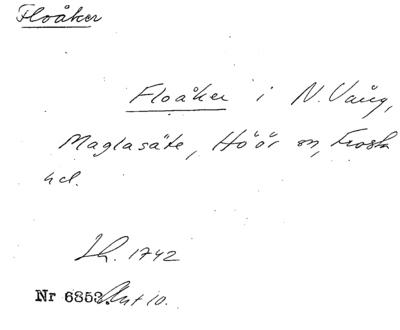 Floåker
Floåker i N. Vång,
Maglasäte, Höör sn, Frosta
hd.
Lh. 1742
Nr 6853. Akt 10.